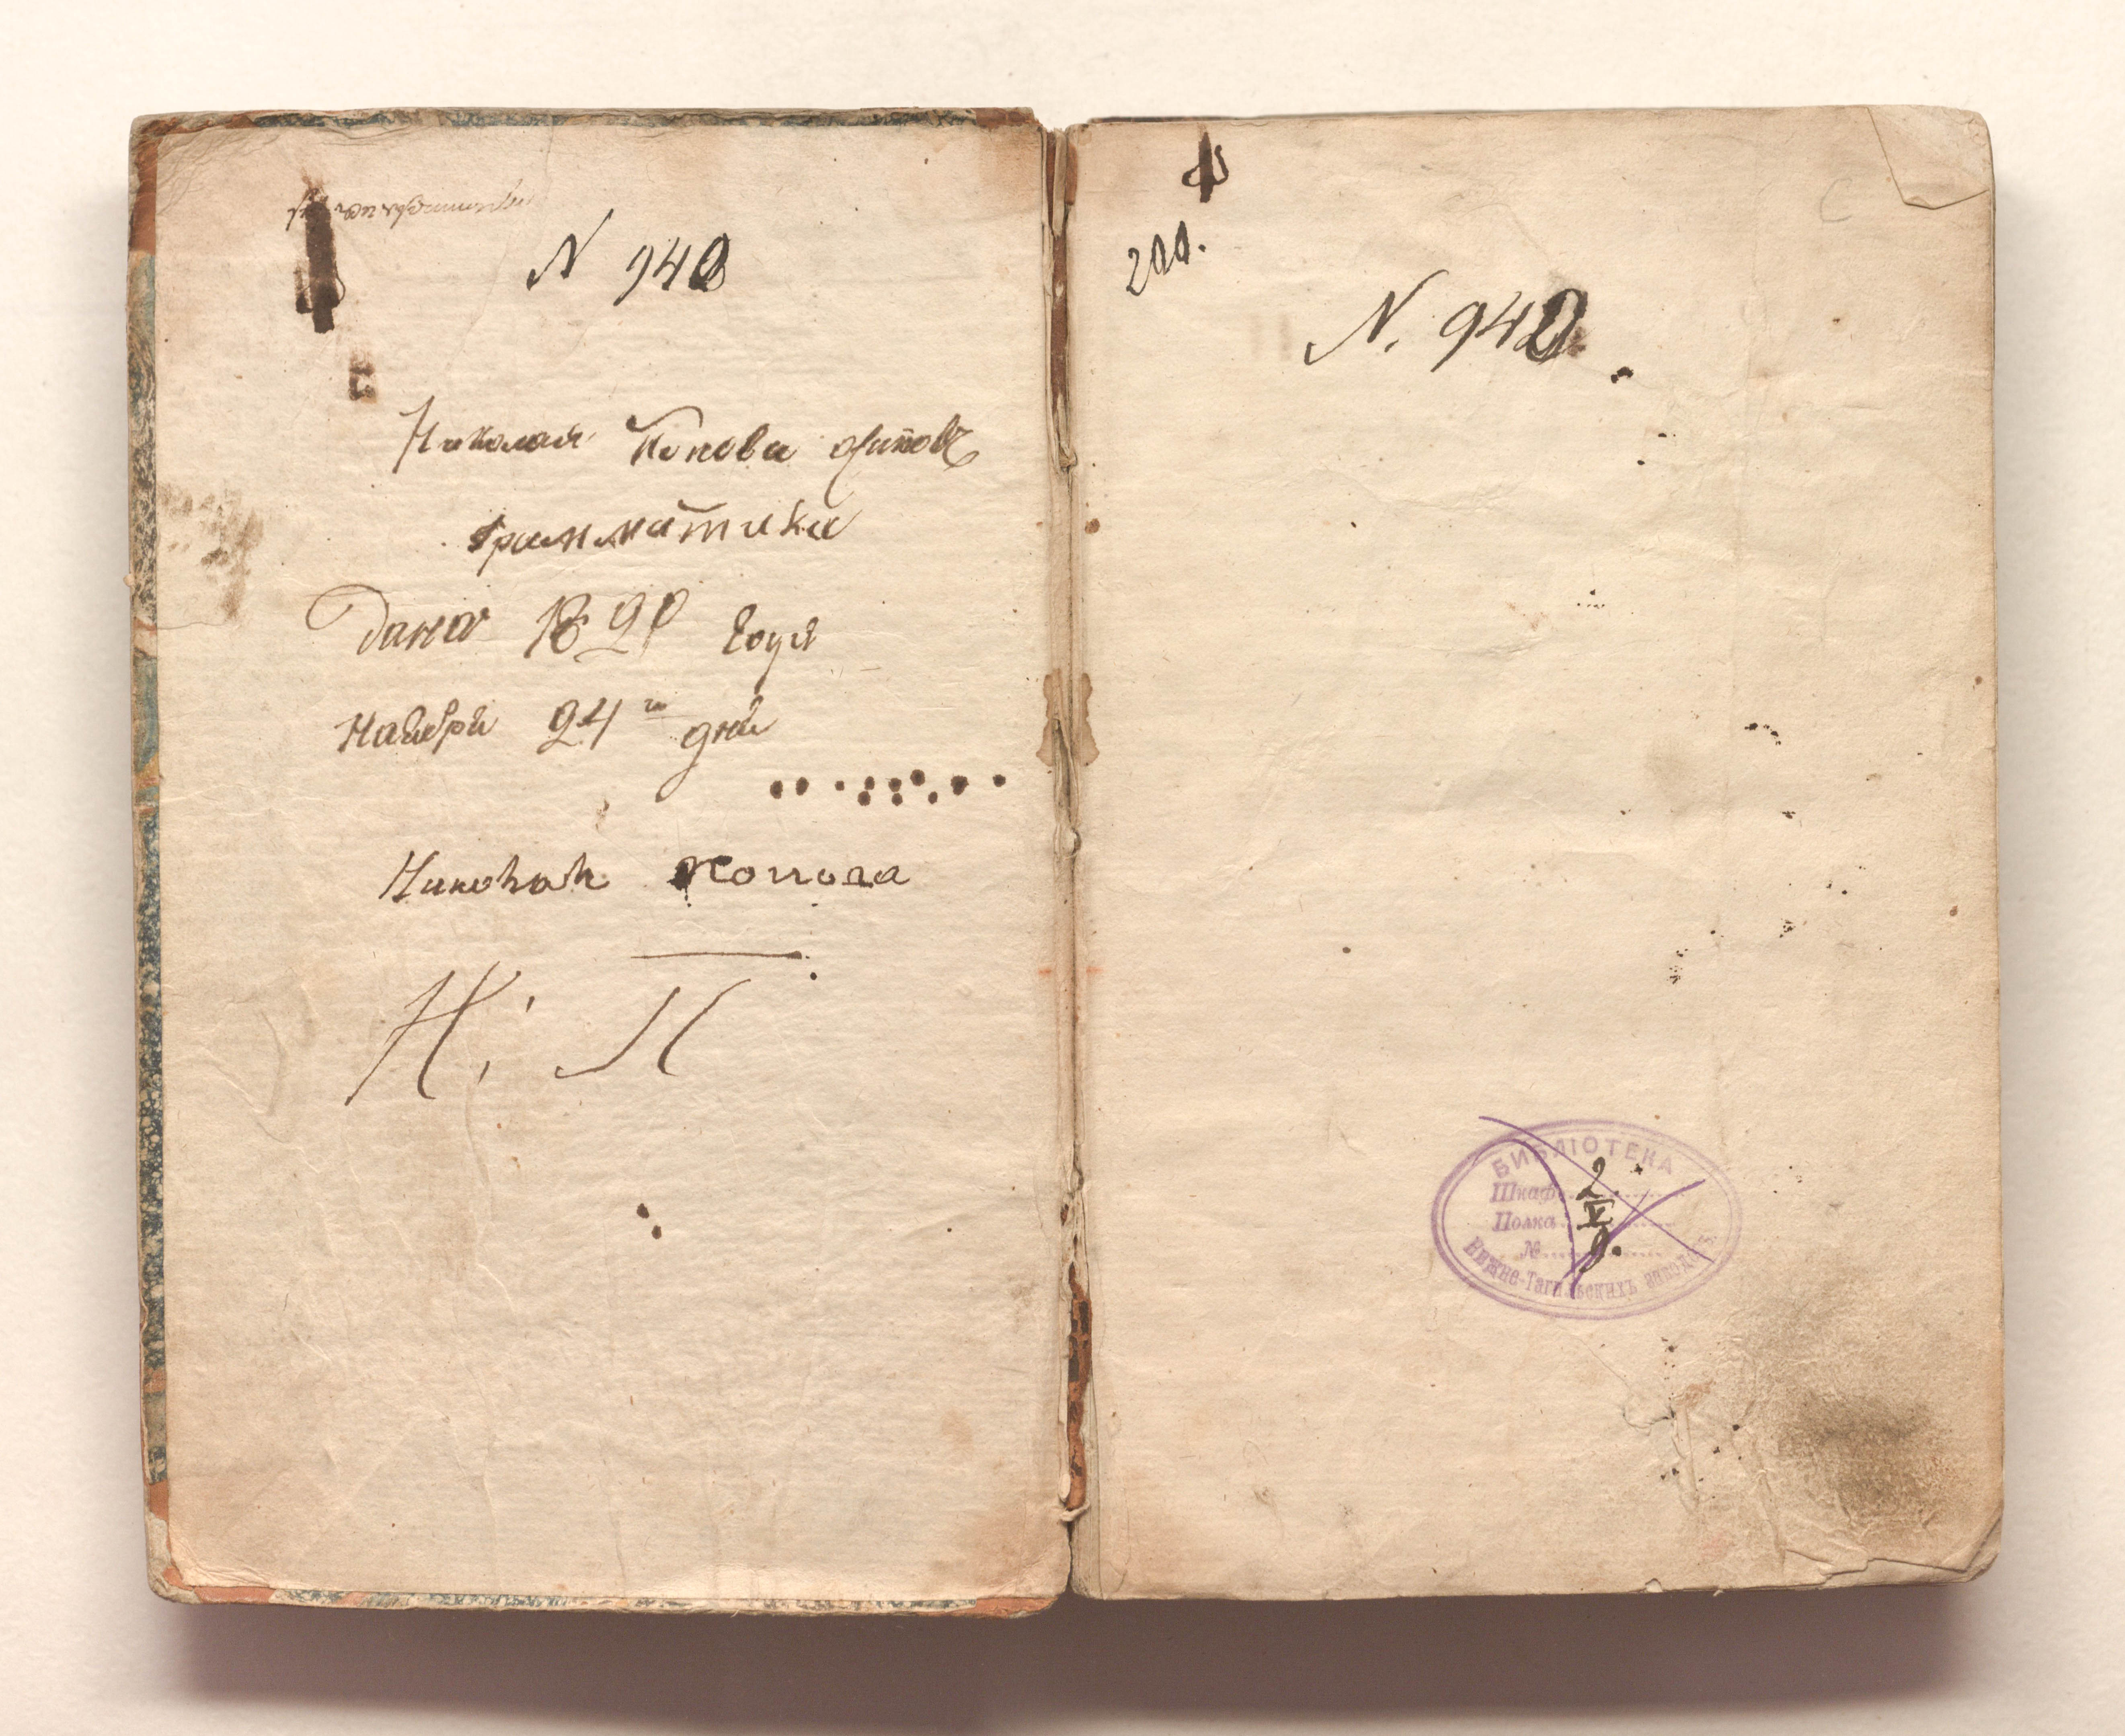 N 940
Николая Попова
грамматика
Дана 1820 года
Наября 24 го дня
Николай Попова
Н. П
200.
N. 940
БИБЛІОТЕКА
Шкафъ 2
Полка V
№ 9.
Нижне-Тагильскихъ заводовъ